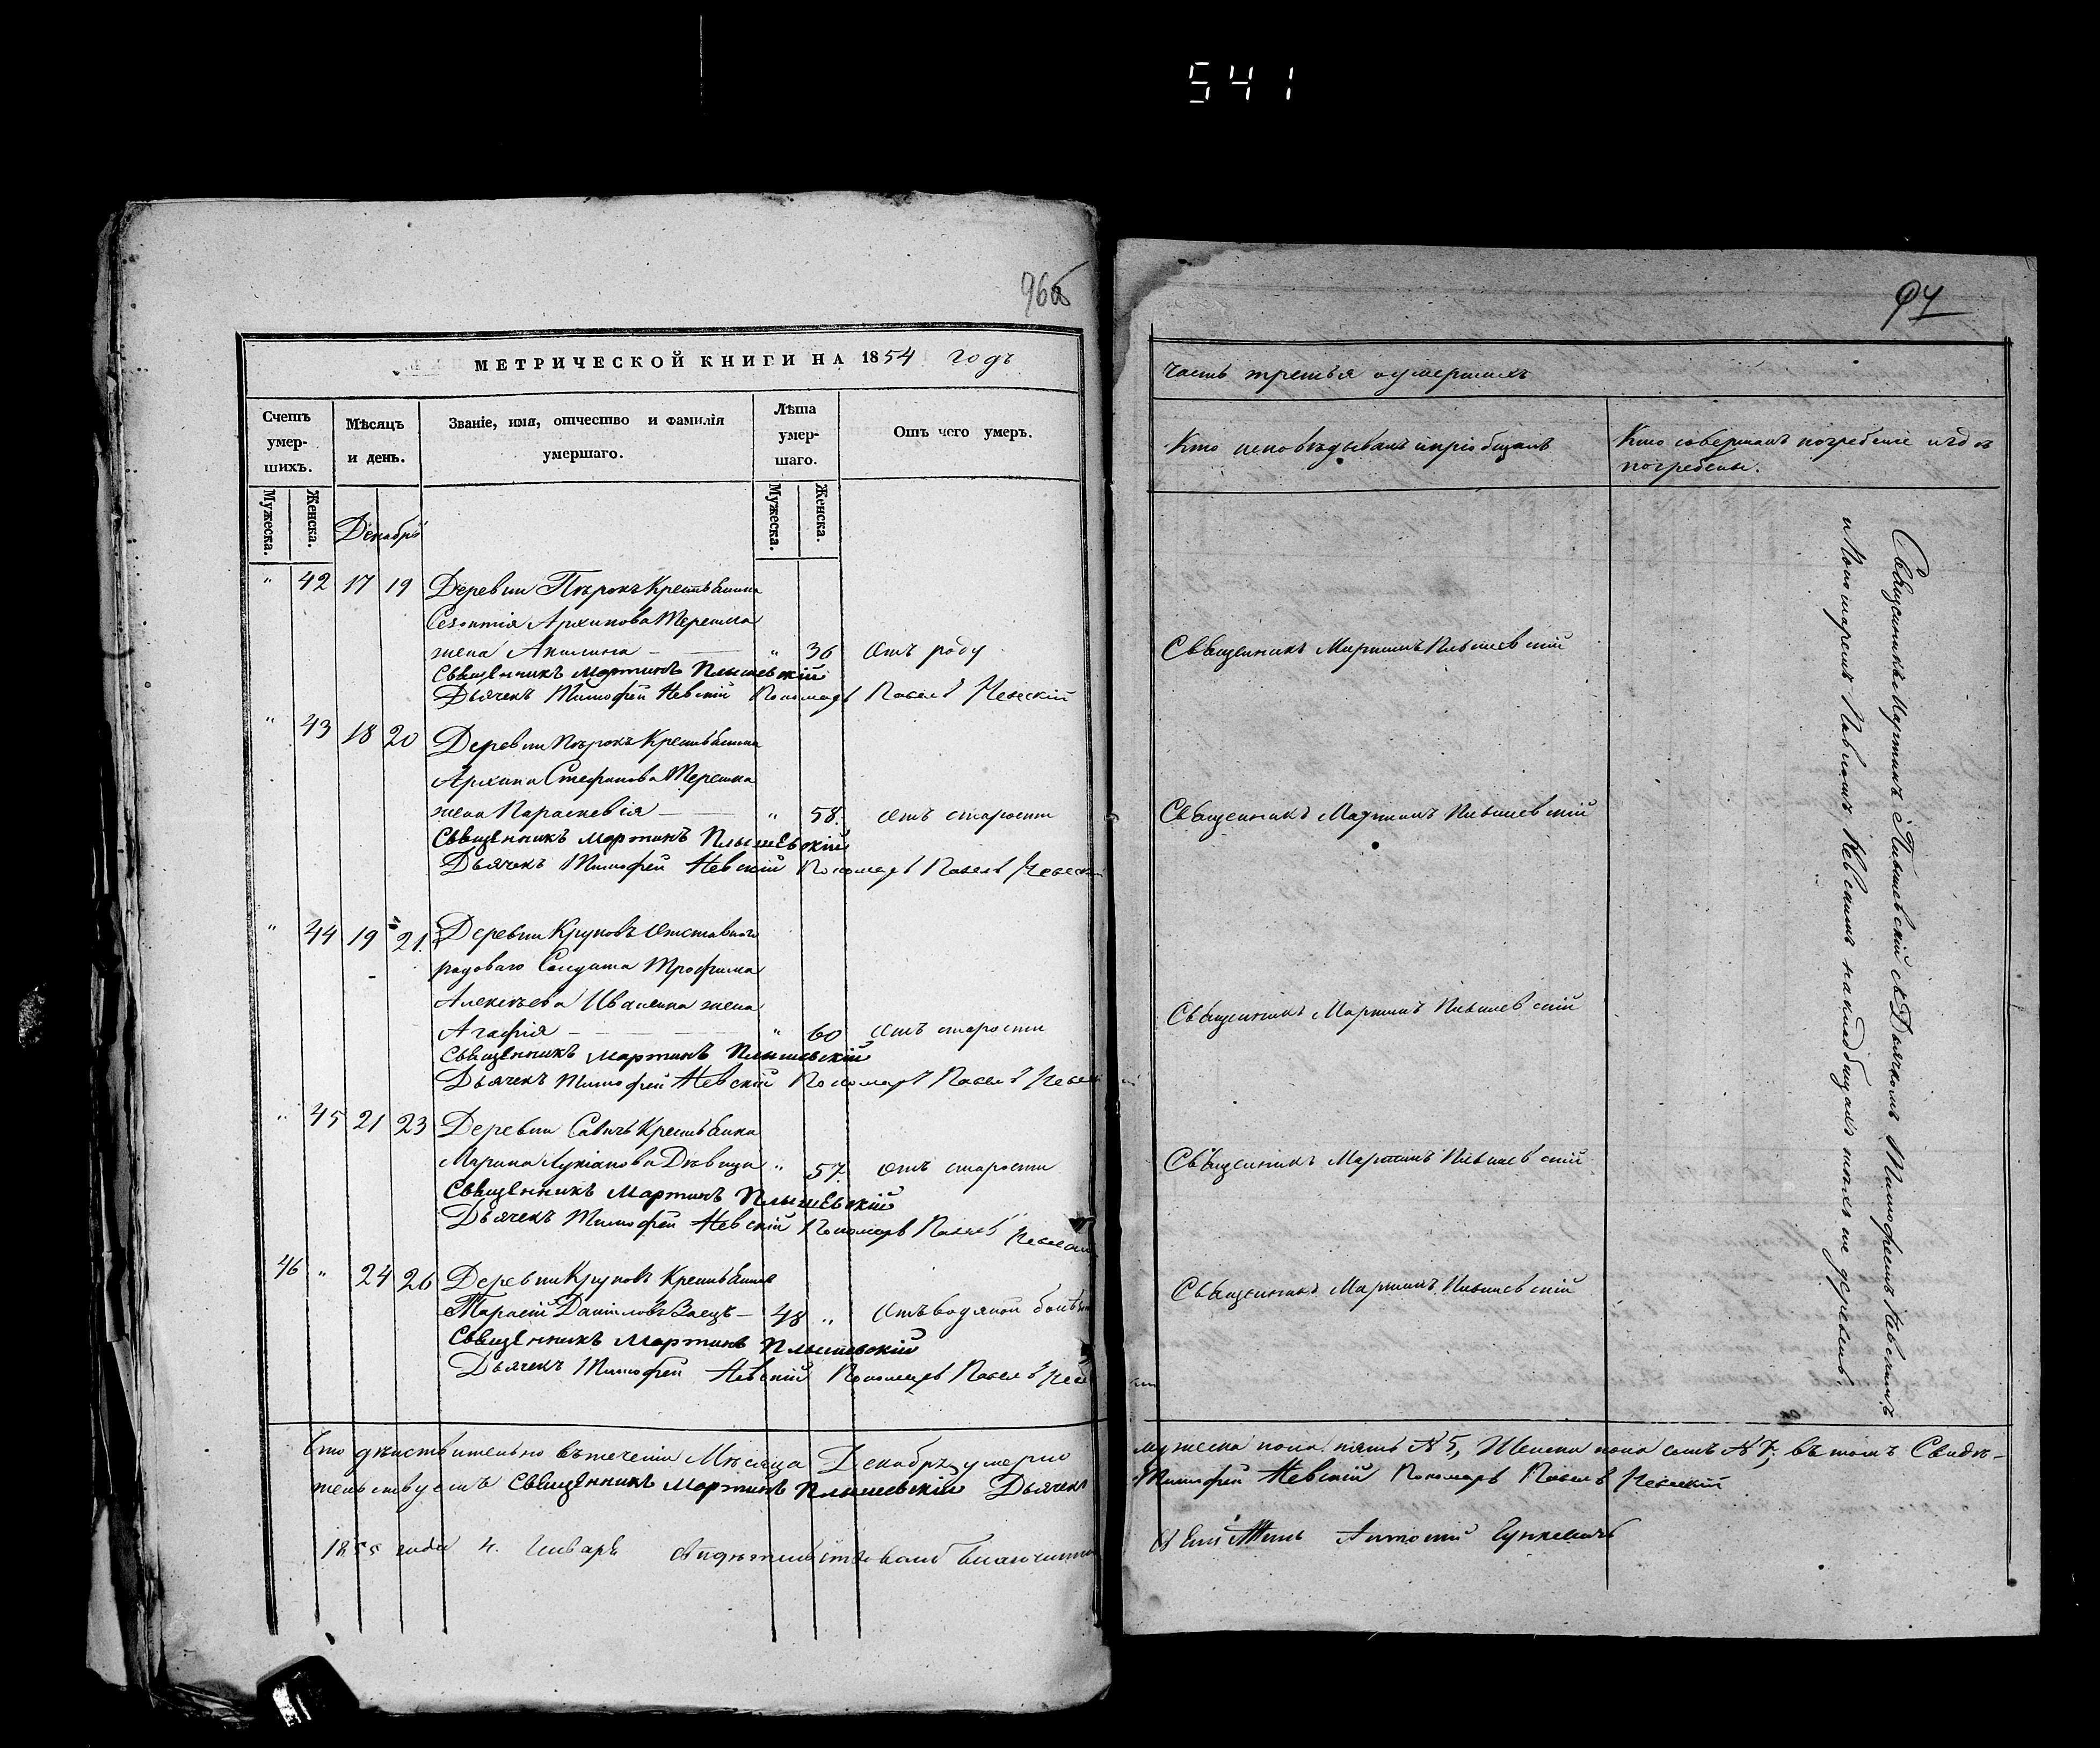 541
96б
МЕТРИЧЕСКОЙ КНИГИ НА 1854 годъ
Счетъ умер-шихъ.
Мѣсяцъ и день.
Званіе, имя, отчество и фамилія умершаго.
Лѣта умер-шаго.
Отъ чего умеръ.
Мужеска.
Женска.
Декабрь
Мужеска.
Женска.
" 42 17 19 Деревни Пѣрокъ Крестьянина
Созонтія Архипова Терешка
жена Акилина — " 36 Отъ роду
Священникъ Мартинъ Плышевскій
Дьячекъ Тимофей Невскій Пономарь Павелъ Невскій
" 43 18 20 Деревни Пѣрокъ Крестьянина
Архипа Стефанова Терешка
жена Параскевія — " 58. Отъ старости
Священникъ Мартинъ Плышевскій
Дьячекъ Тимофей Невскій Пономарь Павелъ
" 44 19 21. Деревни Круповъ Отставнаго
рядоваго Солдата Трофима
Алексѣева жена
Агафія — " 60 Отъ старости
Священникъ Мартинъ Плышевскій
Дьячекъ Тимофей Невскій Пономарь Павелъ
" 45 21 23 Деревни Савичъ Крестьянка
Марина Лукіанова Дѣвица " 57. Отъ старости
Священникъ Мартинъ Плышевскій
Дьячекъ Тимофей Невскій Пономарь Павелъ
46 " 24 26 Деревни Круповъ Крестьянинъ
Тарасій Даніиловъ Заецъ — 48 " Отъ водяной
Священникъ Мартинъ Плышевскій
Дьячекъ Тимофей Невскій Пономарь Павелъ
Что дѣйствительно въ теченіи Мѣсяца Декабря умерло
тельствуетъ Священникъ Мартинъ Плышевскій Дьячекъ
1855 года 4. Января
97
Часть третья о умершихъ
Кто исповѣдывалъ и пріобщалъ
Кто совершалъ погребеніе и гдѣ
погребены.
Священникъ Мартинъ Плышевскій
Священникъ Мартинъ Плышевскій
Священникъ Мартинъ Плышевскій
Священникъ Мартинъ Плышевскій
Священникъ Мартинъ Плышевскій
Священникъ Мартинъ Плышевскій съ Дьячкомъ Тимофеемъ Невскимъ
и Пономаремъ Павломъ Невскимъ на кладбищахъ тѣхъ же деревень.
мужеска пола пять N 5, Женска пола семь N 7. въ томъ Свидѣ-
Тимофей Невскій Пономарь Павелъ Невскій
Антоній